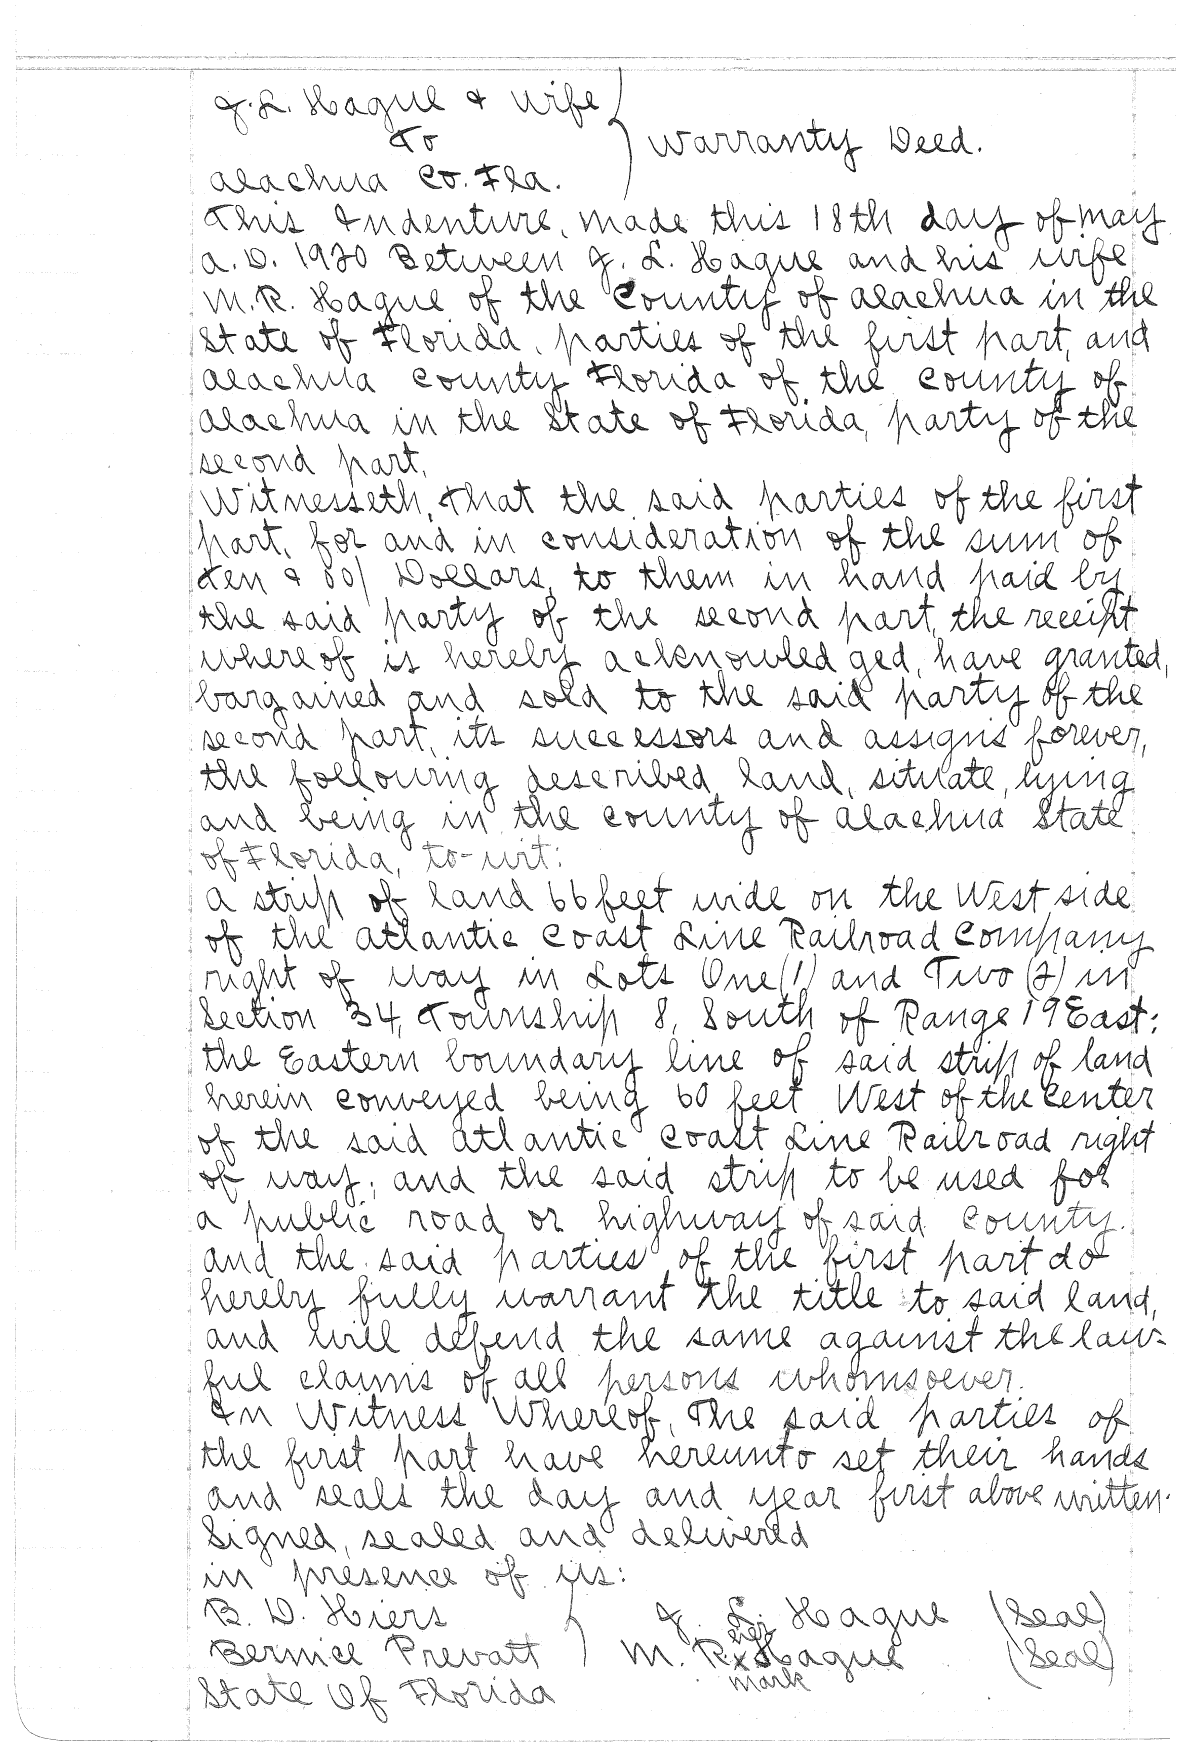 J. L. Hague & Wife
To
Warranty Deed.
Alachua Co. Fla.
This Indenture, made this 18th day of May
A. D. 1920 Between J. L. Hague and his wife
M. R. Hague of the County of Alachua in the
State of Florida, parties of the first part, and
Alachua County Florida of the County of
Alachua in the State of Florida, party of the
second part,
Witnesseth, that the said parties of the first
part, for and in consideration of the sum of
Ten & 00/ Dollars, to them in hand paid by
the said party of the second part, the receipt
whereof is hereby acknowledged, have granted,
bargained and sold to the said party of the
second part, its successors and assigns forever,
the following described land, situate, lying
and being in the county of Alachua State
of Florida, to-wit:
A strip of land 66 feet wide on the West side
of the Atlantic Coast Line Railroad Company
right of way in Lots One (1) and Two (2) in
Section 34, Township 8, South of Range 19 East;
the Eastern boundary line of said strip of land
herein conveyed being 60 feet West of the Center
of the said Atlantic Coast Line Railroad right
of way; and the said strip to be used for
a public road or highway of said County.
and the said parties of the first part do
hereby fully warrant the title to said land,
and will defend the same against the law-
ful claims of all persons whomsoever.
In Witness Whereof, The said parties of
the first part have hereunto set their hands
and seals the day and year first above written.
Signed, sealed and delivered
in presence of us:
B. D. Hiers J. L. Hague (Seal)
her
Bernice Prevatt M. R. x Hague (Seal)
mark
State Of Florida